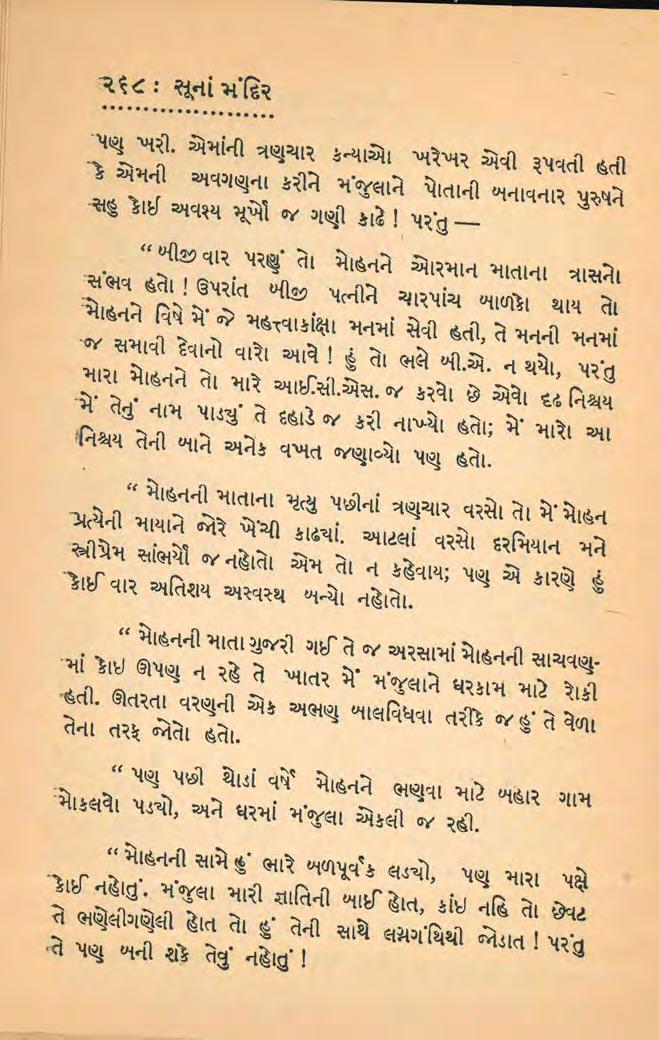 ૨૬૮ : સૂનાં મંદિર
પણ ખરી. એમાંની ત્રણચાર કન્યાઓ ખરેખર એવી રૂપવતી હતી
કે એમની અવગણના કરીને મંજુલાને પોતાની બનાવનાર પુરુષને
સહુ કોઈ અવશ્ય મૂર્ખો જ ગણી કાઢે ! પરંતુ —
“ બીજી વાર પરણું તો મોહનને ઓરમાન માતાના ત્રાસનો
સંભવ હતો ! ઉપરાંત બીજી પત્નીને ચારપાંચ બાળકો થાય તો
મોહનને વિષે મેં જે મહત્ત્વાકાંક્ષા મનમાં સેવી હતી, તે મનની મનમાં
જ સમાવી દેવાનો વારો આવે ! હું તો ભલે બી.એ. ન થયો, પરંતુ
મારા મોહનને તો મારે આઈ.સી.એસ. જ કરવો છે એવો દૃઢ નિશ્ચય
મેં તેનું નામ પાડયું તે દહાડે જ કરી નાખ્યો હતો; મેં મારો આ
નિશ્ચય તેની બાને અનેક વખત જણાવ્યો પણ હતો.
“ મોહનની માતાના મૃત્યુ પછીનાં ત્રણચાર વરસો તો મેં મોહન
પ્રત્યેની માયાને જોરે ખેંચી કાઢયાં. આટલાં વરસો દરમિયાન મને
સ્ત્રીપ્રેમ સાંભર્યો જ નહોતો એમ તો ન કહેવાય; પણ એ કારણે હું
કોઈ વાર અતિશય અસ્વસ્થ બન્યો નહોતો.
“ મોહનની માતા ગુજરી ગઈ તે જ અરસામાં મોહનની સાચવણુ-
માં કોઇ ઊણપ ન રહે તે ખાતર મેં મંજુલાને ઘરકામ માટે રોકી
હતી. ઊતરતા વરણની એક અભણ બાલવિધવા તરીકે જ હું તે વેળા
તેના તરફ જોતો હતો.
“ પણ પછી થોડાં વર્ષે મોહનને ભણવા માટે બહાર ગામ
મોકલવો પડયો, અને ઘરમાં મંજુલા એકલી જ રહી.
“ મોહનની સામે હું ભારે બળપૂર્વક લડયો, પણ મારા પક્ષે
કોઈ નહોતું. મંજુલા મારી જ્ઞાતિની બાઈ હોત, કાંઇ નહિ તો છેવટ
તે ભણેલીગણેલી હોત તો હું તેની સાથે લગ્નગંથિથી જોડાત ! પરંતુ
તે પણ બની શકે તેવું નહોતું !